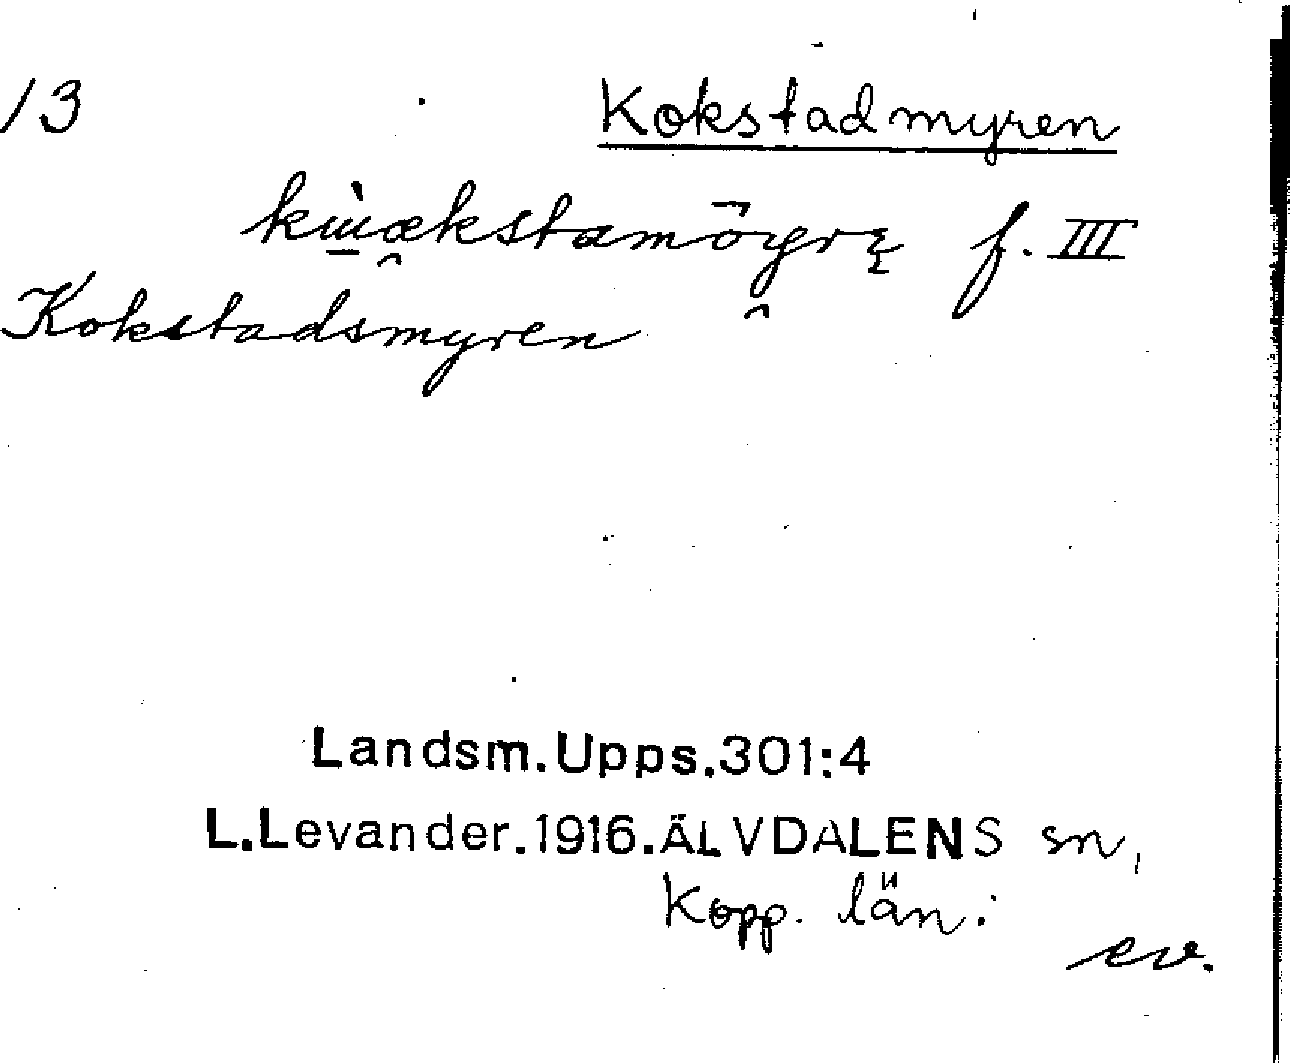 13 Kokstadmyren
f. III
Kokstadsmyren
Landsm.Upps.301:4
L.Levander.1916.ÄLVDALENS sn,
Kopp. län.
ev.